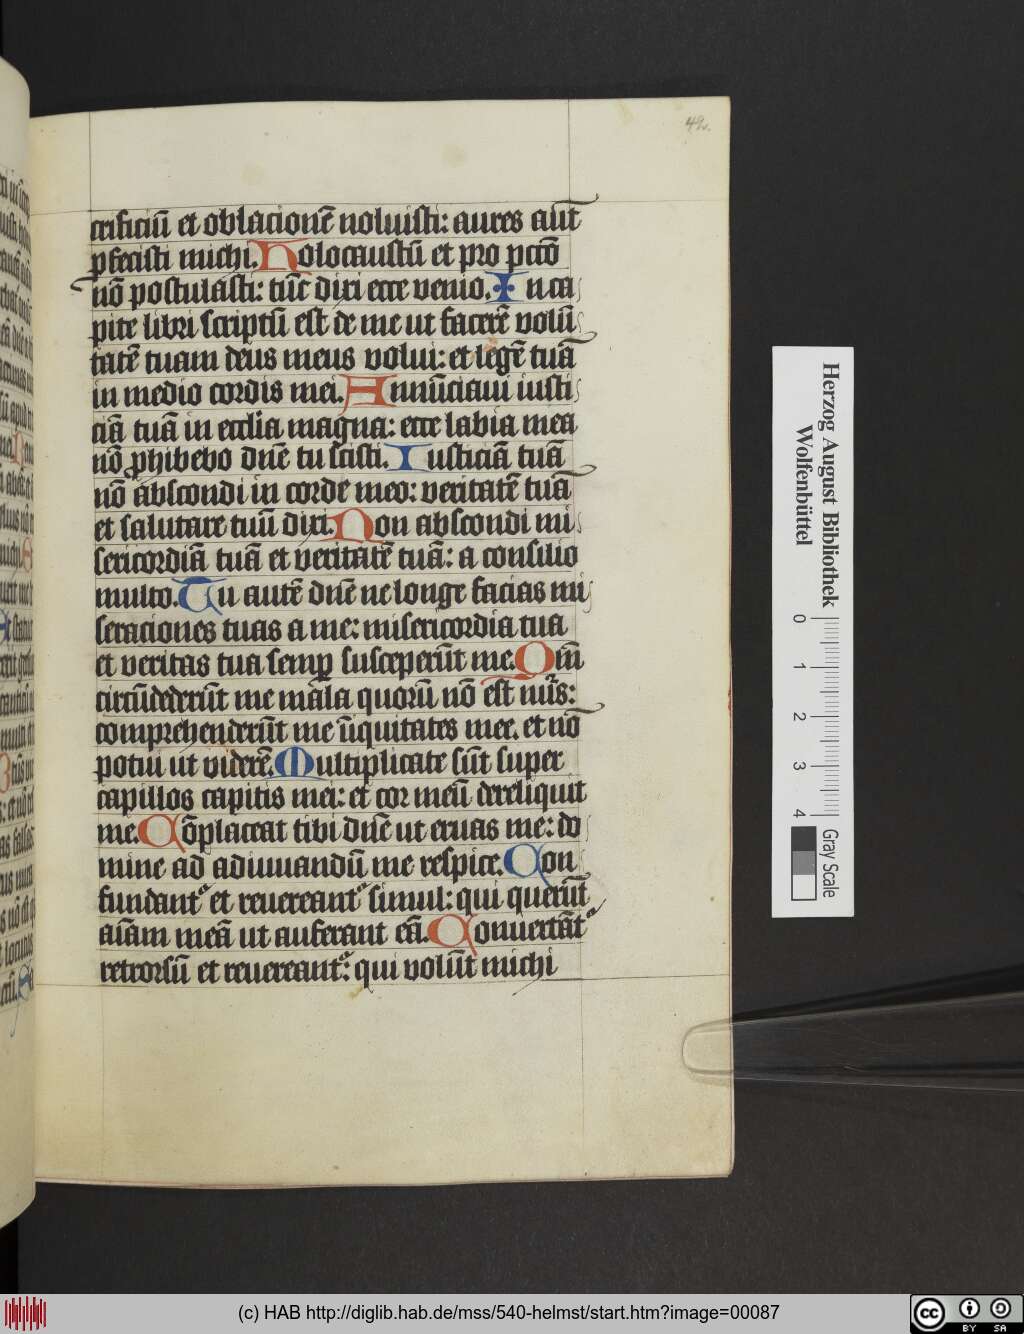 42.
crificiū et oblacionē noluisti: aures aūt
ꝑfecisti michi. Holocaustū et pro pctō
nō postulasti: tūc dixi ecce venio. In ca
pite libri scriptū est de me ut facerē volū
tatē tuam deus meus volui: et legē tuā
in medio cordis mei. Annūciaui iusti
ciā tuā in ecclia magna: ecce labia mea
nō ꝓhibebo dn̄e tu scisti. Iusticiā tuā
nō abscondi in corde meo: veritatē tuā
et salutare tuū dixi. Non abscondi mi
sericordiā tuā et veritatē tuā: a consilio
multo. Tu autē dn̄e ne longe facias mi
seraciones tuas a me: misericordia tua
et veritas tua semꝑ susceperūt me. Qm̄
circūdederūt me mala quorū nō est nūs:
comprehenderūt me īiquitates mee. et nō
potui ut viderē. Multiplicate sūt super
capillos capitis mei: et cor meū dereliquit
me. Cōplaceat tibi dn̄e ut eruas me: do
mine ad adiuuandū me respice. Con
fundantʳ et reuereantʳ simul: qui querūt
aīam meā ut auferant eā. Conuertātʳ
retrorsū et reuereantʳ: qui volūt michi
Herzog August Bibliothek
Wolfenbüttel
0 1 2 3 4
Gray Scale
(c) HAB http://diglib.hab.de/mss/540-helmst/start.htm?image=00087
cc BY SA